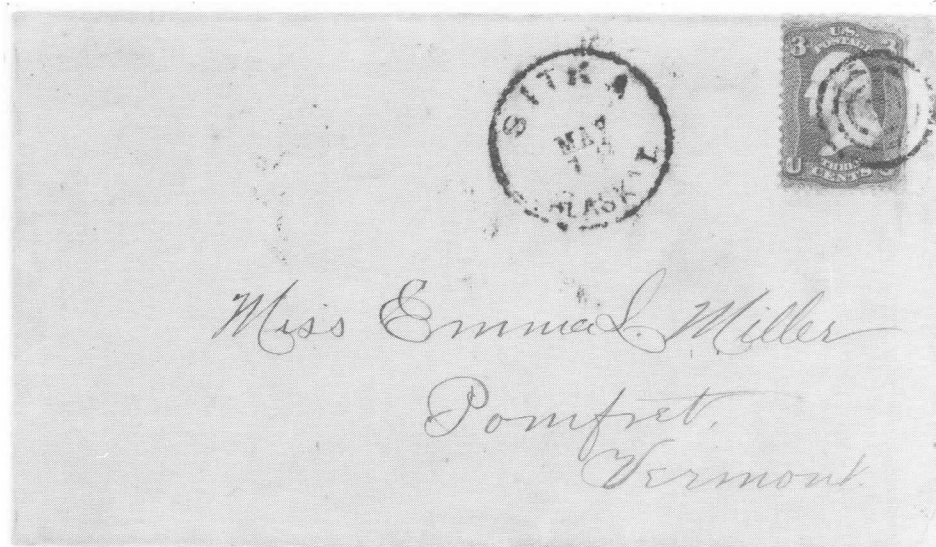 SITKA
MAY
7
ALASKA
3 U.S. POSTAGE 3
U THREE CENTS S
Miss Emma L. Miller
Pomfret,
Vermont.